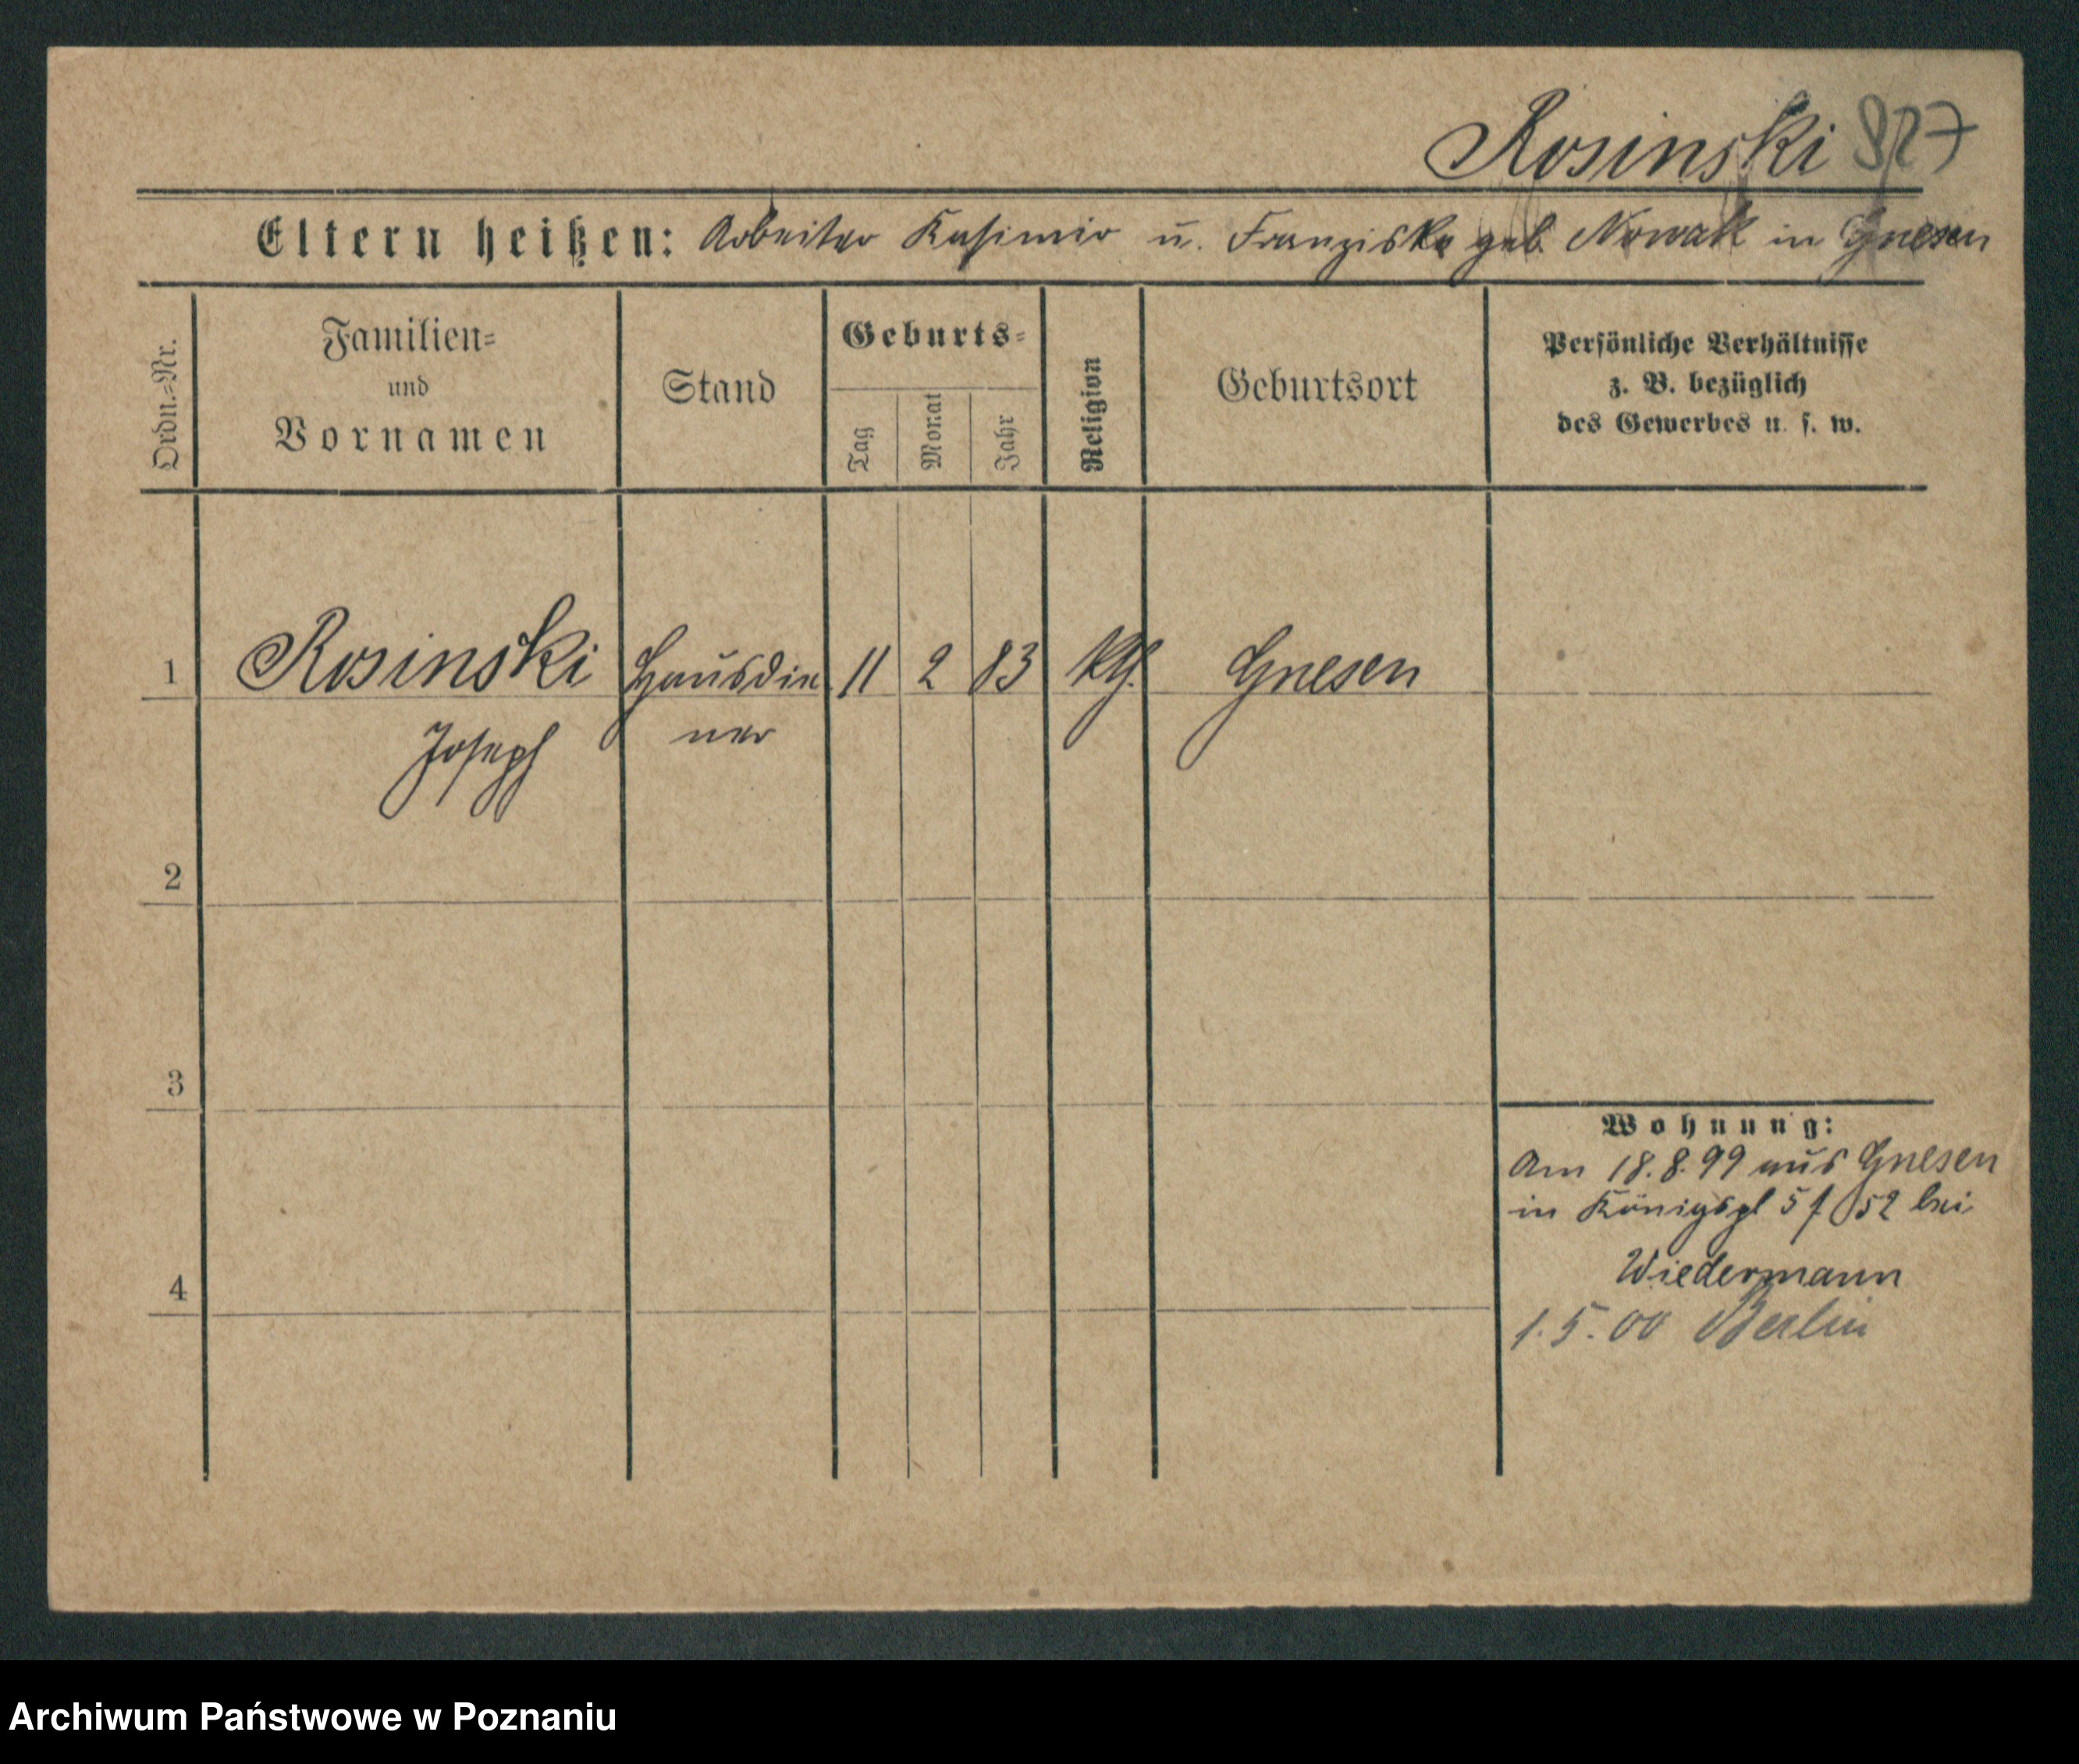 Rosinski 827
Eltern heißen: Arbeiter Kasimir u. Franziska geb. Nowak in Gnesen
Ordn.=Nr.
Familien=
und
Vornamen
Stand
Geburts=
Tag
Monat
Jahr
Religion
Geburtsort
Persönliche Verhältnisse
z. B. bezüglich
des Gewerbes u. s. w.
1 Rosinski Hausdie 11 2 83 Gnesen
Joseph ner
2
3
4
Wohnung:
Am 18.8.99 aus Gnesen
in Königspl 5 bei
Wiedermann
1.5.00 Berlin
Archiwum Państwowe w Poznaniu